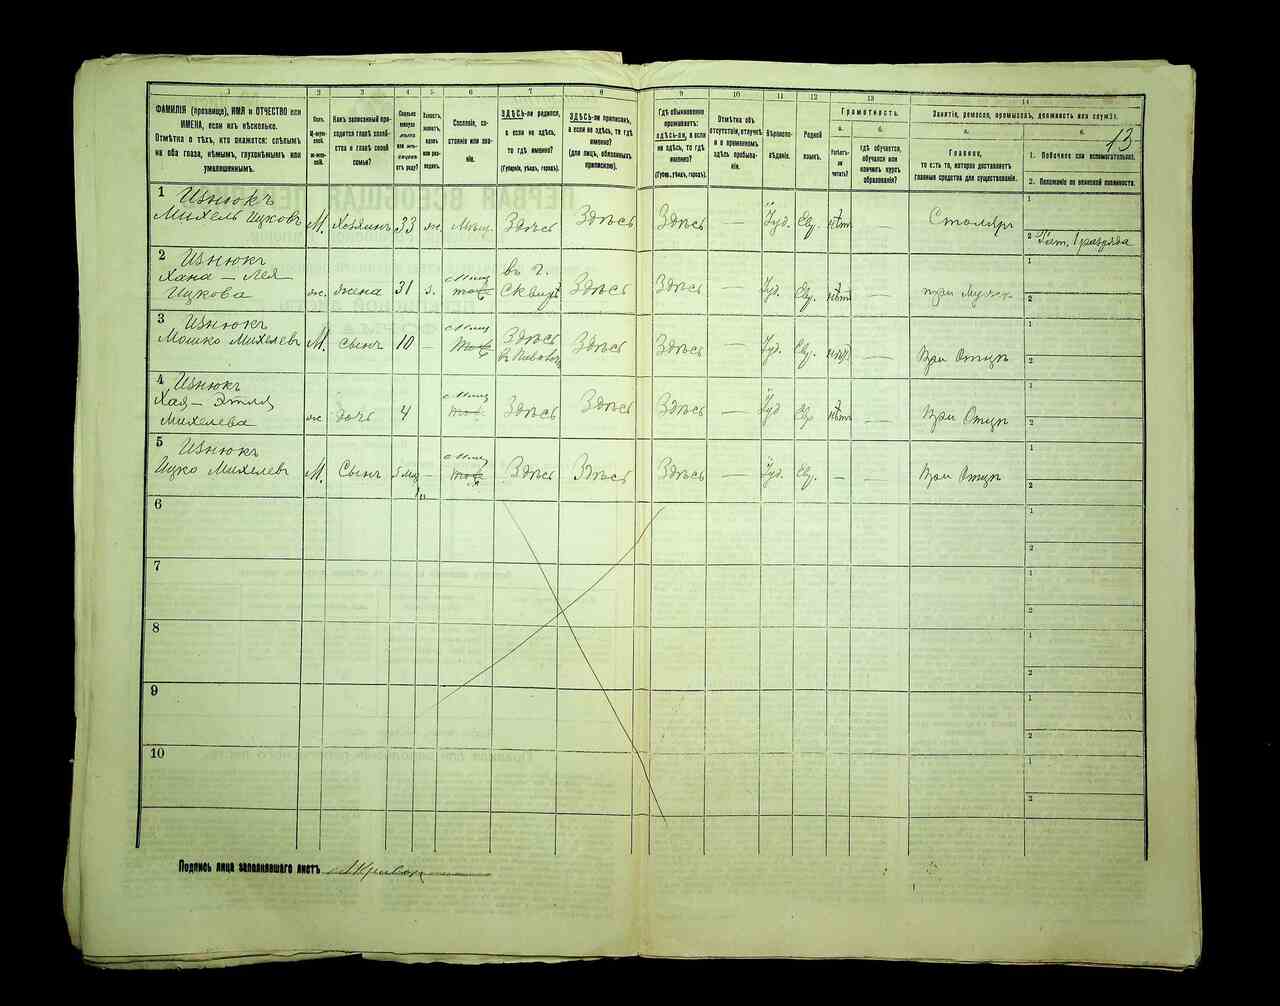 1 2 3 4 5. 6 7 8 9 10 11 12 13 14
ФАМИЛІЯ (прозвище), ИМЯ и ОТЧЕСТВО или ИМЕНА, если ихъ нѣсколько.
Отмѣтка о тѣхъ, кто окажется: слѣпымъ на оба глаза, нѣмымъ, глухонѣмымъ или умалишеннымъ.
Полъ.
М-мужской.
Ж-женскій.
Какъ записанный приходится главѣ хозяйства и главѣ своей семьи?
Сколько минуло лѣтъ или мѣсяцевъ отъ роду?
Холостъ, женатъ, вдовъ или разведенъ.
Сословіе, состояніе или званіе.
ЗДѢСЬ-ли родился, а если не здѣсь, то гдѣ именно?
(Губернія, уѣздъ, городъ).
ЗДѢСЬ-ли приписанъ, а если не здѣсь, то гдѣ именно?
(для лицъ, обязанныхъ припискою).
Гдѣ обыкновенно проживаетъ: здѣсь-ли, а если не здѣсь, то гдѣ именно?
(Губерн., уѣздъ, городъ).
Отмѣтка объ отсутствіи, отлучкѣ и о временномъ здѣсь пребываніи.
Вѣроисповѣданіе.
Родной языкъ.
Грамотность.
а.
Умѣетъ-ли читать?
б.
Гдѣ обучается, обучался или кончилъ курсъ образованія?
Занятіе, ремесло, промыселъ, должность или служба.
а.
Главное,
то есть то, которое доставляетъ главныя средства для существованія.
б.
13
1. Побочное или вспомогательное.
2. Положеніе по воинской повинности.
1 Изнюкъ
Михель Ицковъ М. Хозяинъ 33 жс. Мѣщ. Здѣсь Здѣсь Здѣсь — Іуд. Евр. нѣт — Столяръ
1
2 Рат. 1 разряда
2 Изнюкъ
Хана — Лея
Ицкова жс. жена 31 з. Мѣщ въ г. Сквирѣ Здѣсь Здѣсь — Іуд. Евр. нѣт — при Мужѣ
1
2
3 Изнюкъ
Мошко Михелевъ М. Сынъ 10 — Мѣщ Здѣсь Здѣсь Здѣсь — Іуд. Евр. — При Отцѣ
1
2
4 Изнюкъ
Хая — Этля
Михелева жс дочь 4 Мѣщ Здѣсь Здѣсь Здѣсь — Іуд Евр нѣт — При Отцѣ
1
2
5 Изнюкъ
Ицко Михелевъ М. Сынъ 5 мѣс — Мѣщ Здѣсь Здѣсь Здѣсь — Іуд. Евр. — — При Отцѣ
1
2
6
1
2
7
1
2
8
1
2
9
1
2
10
1
2
Подпись лица заполнявшаго листъ